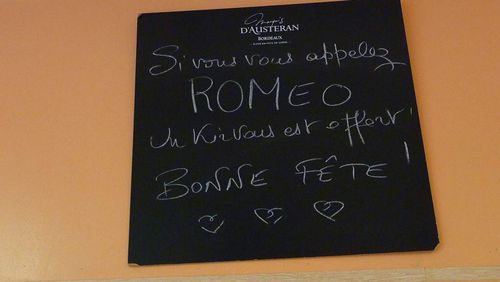 D'AUSTERAN
BORDEAUX
Si vous vous appelez
ROMEO
Un Kir vous est offert !
BONNE FÊTE !